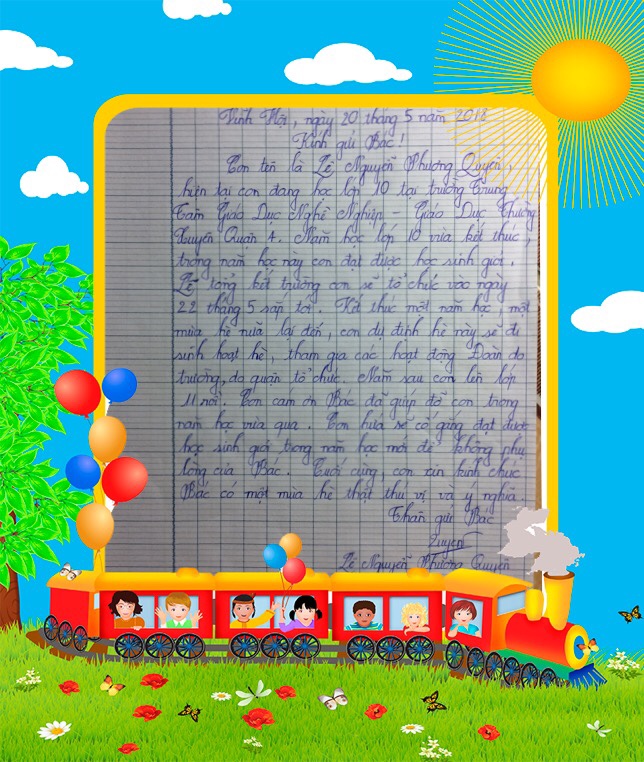 Vĩnh Hội, ngày 20 tháng 5 năm 2018
Kính gửi Bác!
Con tên là Lê Nguyễn Phương Quyên,
hiện tại con đang học lớp 10 tại trường Trung
Tâm Giáo Dục Nghề Nghiệp - Giáo Dục Thường
Xuyên Quận 4. Năm học lớp 10 vừa kết thúc,
trong năm học này con đạt được học sinh giỏi.
Lễ tổng kết trường con sẽ tổ chức vào ngày
22 tháng 5 sắp tới. Kết thúc một năm học, một
mùa hè nữa lại đến, con dự định hè này sẽ đi
sinh hoạt hè, tham gia các hoạt động Đoàn do
trường, do quận tổ chức. Năm sau con lên lớp
11 rồi. Con cảm ơn Bác đã giúp đỡ con trong
năm học vừa qua. Con hứa sẽ cố gắng đạt được
học sinh giỏi trong năm học mới để không phụ
lòng của Bác. Cuối cùng, con xin kính chúc
Bác có một mùa hè thật thú vị và ý nghĩa.
Thân gửi Bác
Quyên
Lê Nguyễn Phương Quyên